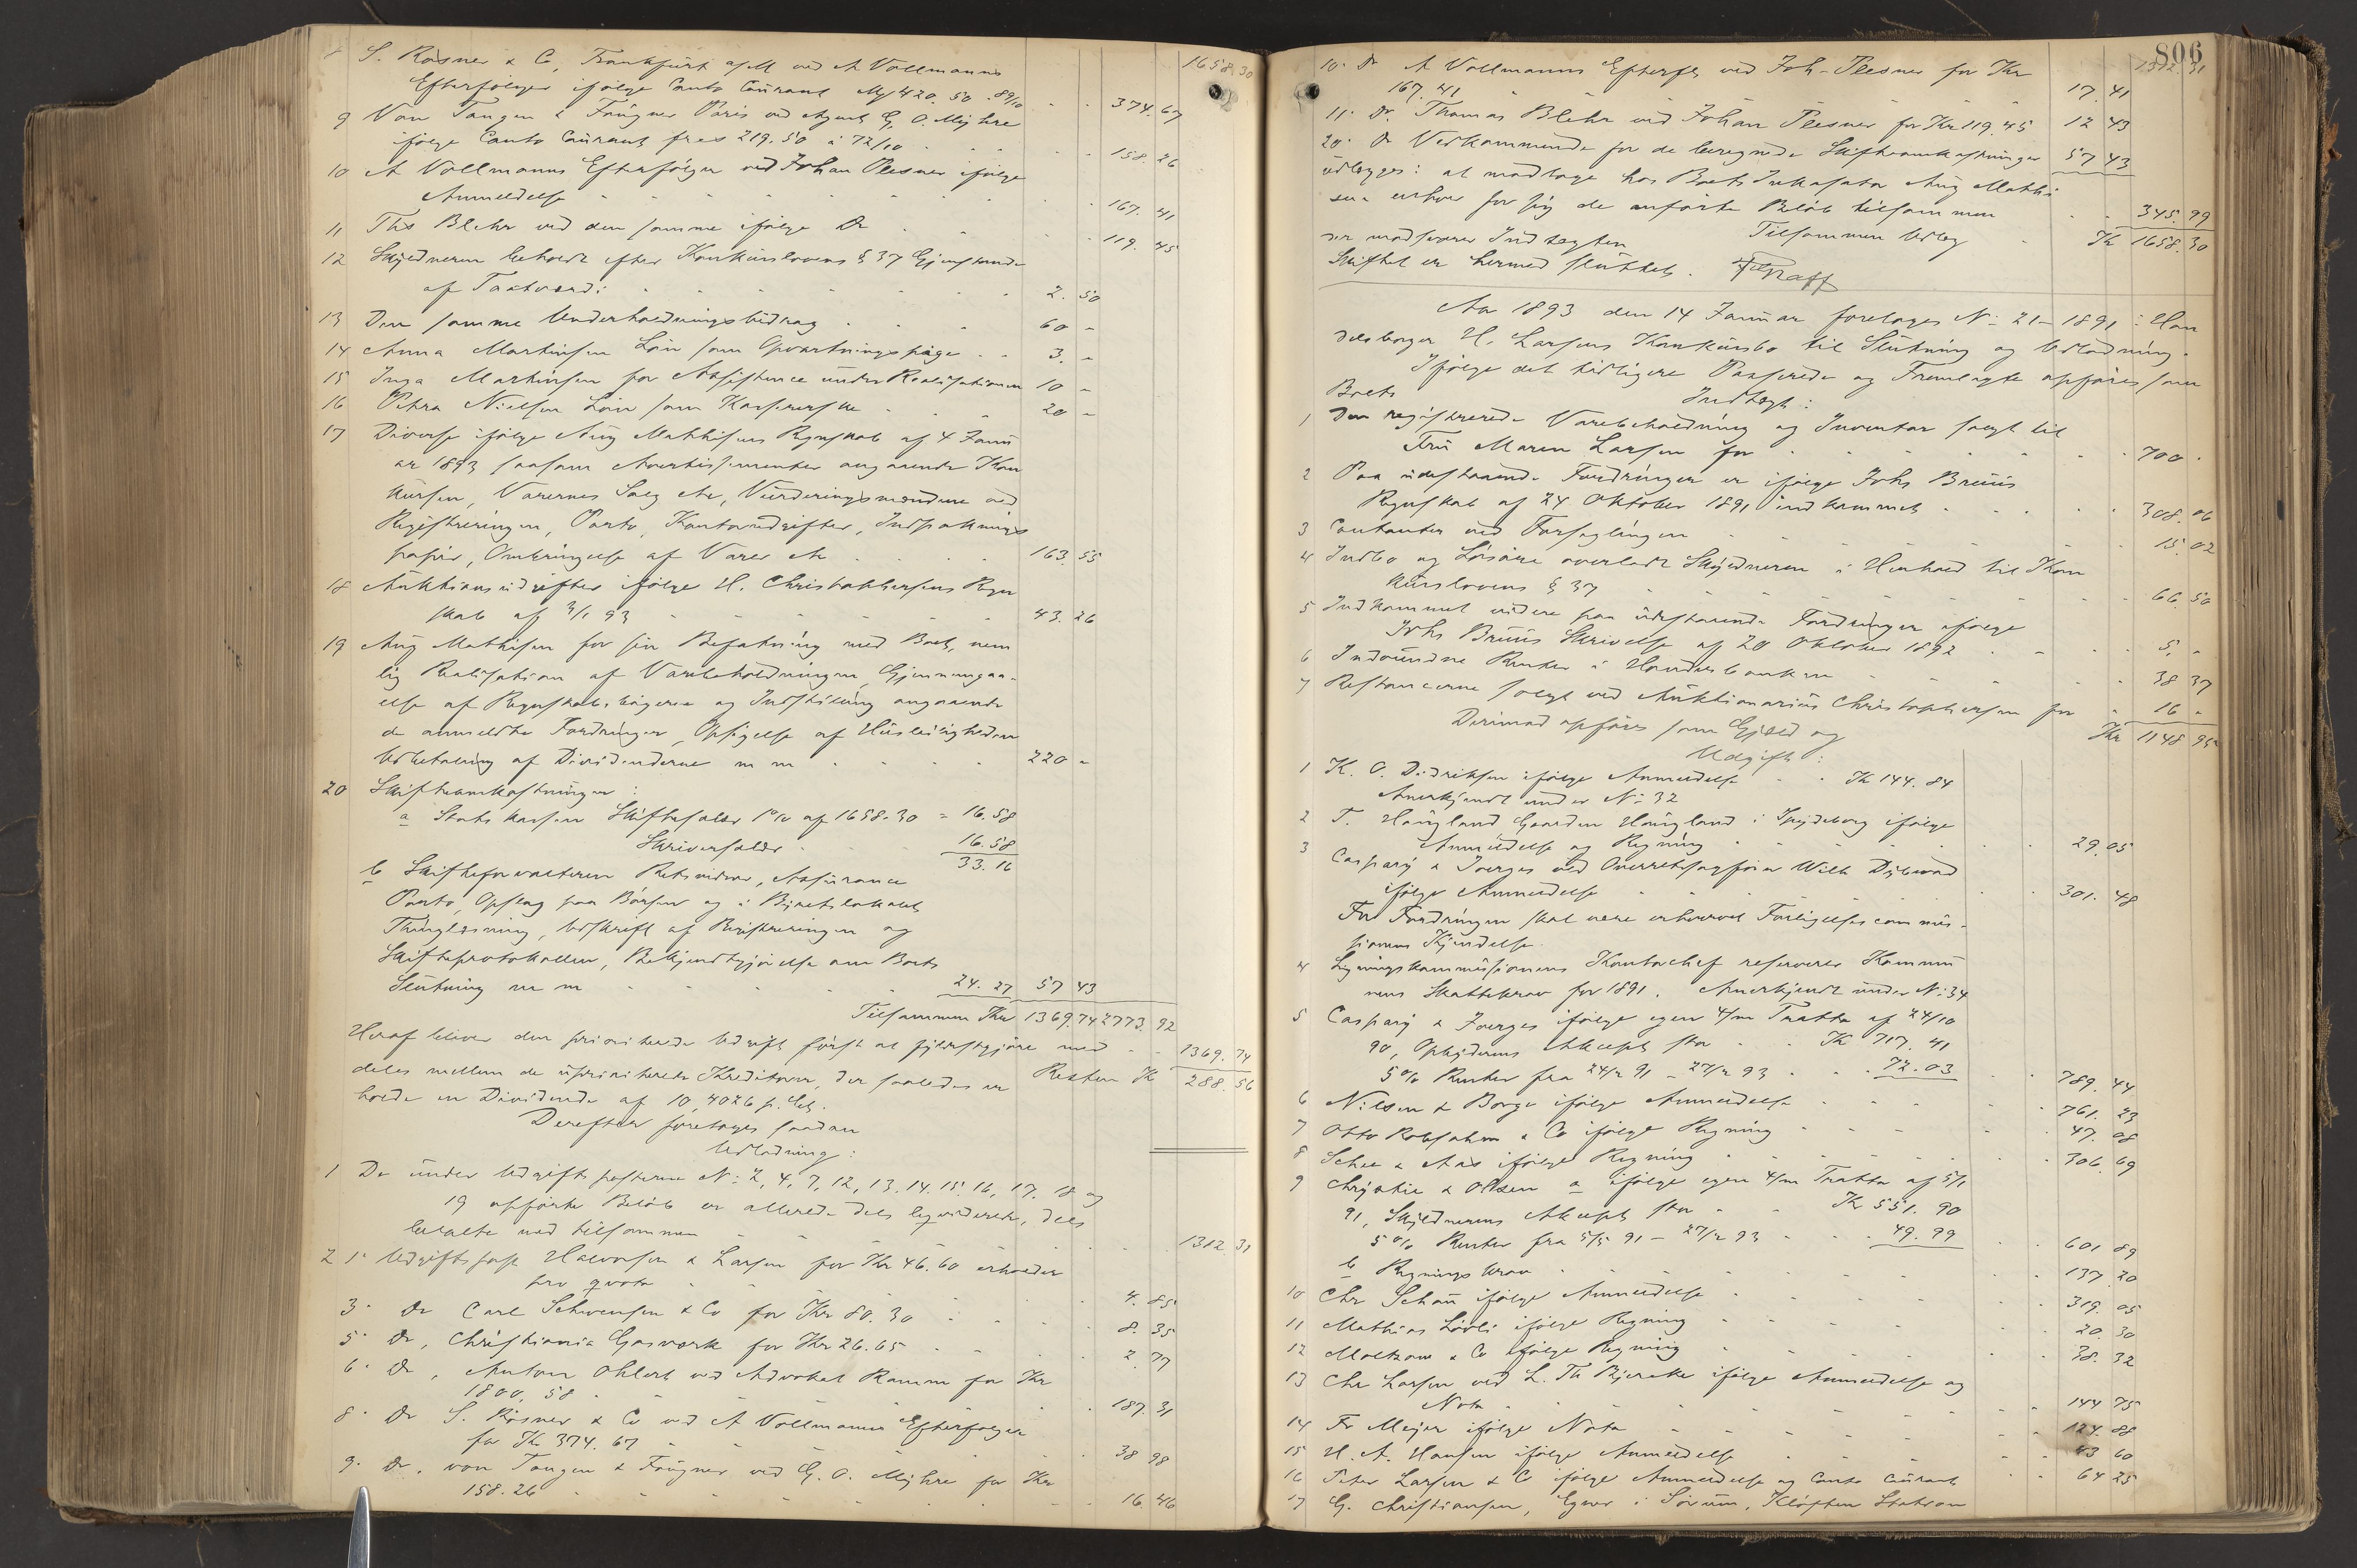 1658.30
8 S. Rösner & Co, Frankfurt a/M ved A Vollmanns
Efterfølger ifølge Conto Courant My 420. 50 . 89/10 374.67
9 Von Tangen & Faugner Paris ved Agent G. O. Myhre
ifølge Conto Courant frcs 219.50 à 72/10 158.26
10 A Vollmanns Efterfølger ved Johan Plesner ifølge
Anmeldelse 167.41
11 Ths Blehr ved den samme ifølge Do 119.45
12 Skyldneren beholdt efter Konkurslovens § 37 Gjenstande
af Taxtværdi: 2.50
13 Den samme Underholdningsbidrag 60 "
14 Anna Martinsen Løn som Opvartningspige 3. "
15 Inga Martinsen for Assistence under Realisationen 10 "
16 Petra Nielsen Løn som Kassererske 20 "
17 Diverse ifølge Aug Mathisens Regnskab af 4 Janu
ar 1893 saasom Avertissementer angaaende Kon
kursen, Varernes Salg etc, Vurderingsmændene ved
Registreringen, Porto, Kontorudgifter, Indpaknings
papir, Ombringelse af Varer etc 163.55
18 Auktionsudgifter ifølge H. Christophersens Regn
skab af 3/1 93 43.26
19 Aug Mathisen for sin Befatning med Boet, nem
lig Realisation af Varebeholdningen, Gjennemgaa-
else af Regnskabsbøgerne og Indstilling angaaende
de anmeldte Fordringer, Opsigelse af Husleiligheden
Udbetaling af Dividenderne m m 220 "
20 Skifteomkostninger:
a Statskassen Skiftesalær 1% af 1658.30 = 16.58
Skriversalær 16.58
33.16
b Skifteforvalteren Retsvidner, Assurance
Porto, Opslag paa Børsen og i Byretslokalet
Thinglæsning, Udskrift af Registreringen og
Skifteprotokollen, Bekjendtgjørelse om Boets
Slutning m m 24.27 57 43
Tilsammen Kr 1369.74 2773.92
Heraf bliver den prioriterede Udgift først at fyldestgjøre med 1369.74
Resten Kr 288.56
deles mellem de uprioriterede Kreditorer, der saaledes er
holde en Dividende af 10,4026 p. Ct.
Derefter foretages saadan
Udlodning:
1 De under Udgiftsposterne No 2, 4, 7, 12, 13. 14. 15. 16, 17. 18 og
19 opførte Beløb er allerede dels likviderede, dels
betalte med tilsammen 1312.31
2 1. Udgiftspost Halvorsen & Larsen for Kr 46.60 erholder
pro quota 4.85
3. Do Carl Schwensen & Co for Kr 80.30 8.35
5. Do, Christiania Gasværk for Kr 26.65 2.77
6. Do, Anton Ohlert ved Advokat Ramm for Kr
1800,58 187.31
8. Do S. Rösner & Co ved A Vollmanns Efterfølger
for Kr 374.67 38 98
9. Do, von Tangen & Faugner ved G. O. Myhre for Kr
158.26 16.46
806
1312.31
10. Do A Vollmanns Efterflg ved Joh. Plesner for Kr
167.41 17.41
11. Do. Thomas Blehr ved Johan Plesner for Kr 119.45 12 43
20. Do Vedkommende for de beregnede Skifteomkostninger 57 43
udlægges: at modtage hos Boets Inkasator Aug Mathi
sen enhver for sig de anførte Beløb tilsammen 345.99
Tilsammen Udlæg Kr 1658.30
der modsvarer Indtægten
Skiftet er hermed sluttet.
Aar 1893 den 14 Januar foretoges No 21 - 1891: Han
delsborger H. Larsens Konkursbo til Slutning og Udlodning.
Ifølge det tidligere Passerede og Fremlagte opføres som
Boets Indtægt:
1 Den registrerede Varebeholdning og Inventar solgt til
Fru Maren Larsen for 700.
2 Paa udestaaende Fordringer er ifølge Johs Bruuns
Regnskab af 24. Oktober 1891 indkommet 308.06
3 Contanter ved Forseglingen 15.02
4 Indbo og Løsøre overladt Skyldneren i Henhold til Kon
kurslovens § 37 66.50
5 Indkommet videre paa udestaaende Fordringer ifølge
Johs Bruuns Skrivelse af 20 Oktober 1892 5. "
6 Indvundne Renter i Handelsbanken 38 37
7 Restancerne solgt ved Auktionarius Christophersen for 16 "
Kr 1148 95
Derimod opføres som Gjæld og
Udgift:
1 K. O. Didriksen ifølge Anmeldelse Kr 144.84
Anerkjendt under No 32
2 T. Haugland Gaarden Haugland i Spydeberg ifølge
Anmeldelse og Regning 29.05
3 Caspary & Joerges ved Overretssagfører Wilh Dybwad
ifølge Anmeldelse 301.48
For Fordringen skal være erhvervet Forligelsescommis-
sionens Kjendelse.
4 Ligningskommissionens Kontorchef reserverer Kommu
nens Skattekrav for 1891. Anerkjendt under No 34
5 Caspary & Joerges ifølge egen 4/m Tratta af 24/10
90, Opbyderens Akcept stor Kr 717.41
5% Renter fra 24/2 91 - 27/2 93 72.03 789.44
6 Nilsen & Borge ifølge Anmeldelse 761.23
7 Otto Robsahm & Co ifølge Regning 47.08
8 Schee & Aas ifølge Regning 306.69
9 Christie & Olsen a ifølge egen 4/m Tratta af 5/1
91, Skyldnerens Akcept stor Kr 551.90
5% Renter fra 5/5 91 - 27/2 93 49.99 601 89
b Regningskrav 137 20
10 Chr Schou ifølge Anmeldelse 319.05
11 Mathias Løvli ifølge Regning 20.30
12 Moltzau & Co ifølge Regning 38.32
13 Chr Larsen ved L. Th Bjercke ifølge Anmeldelse og
Nota 144 75
14 Fr Meyer ifølge Nota 124.88
15 H. A. Hansen ifølge Anmeldelse 43 60
16 Peter Larsen & Co ifølge Anmeldelse og Conto Courant 64 25
17 G. Christiansen, Egner i Sørum, Kløften Station